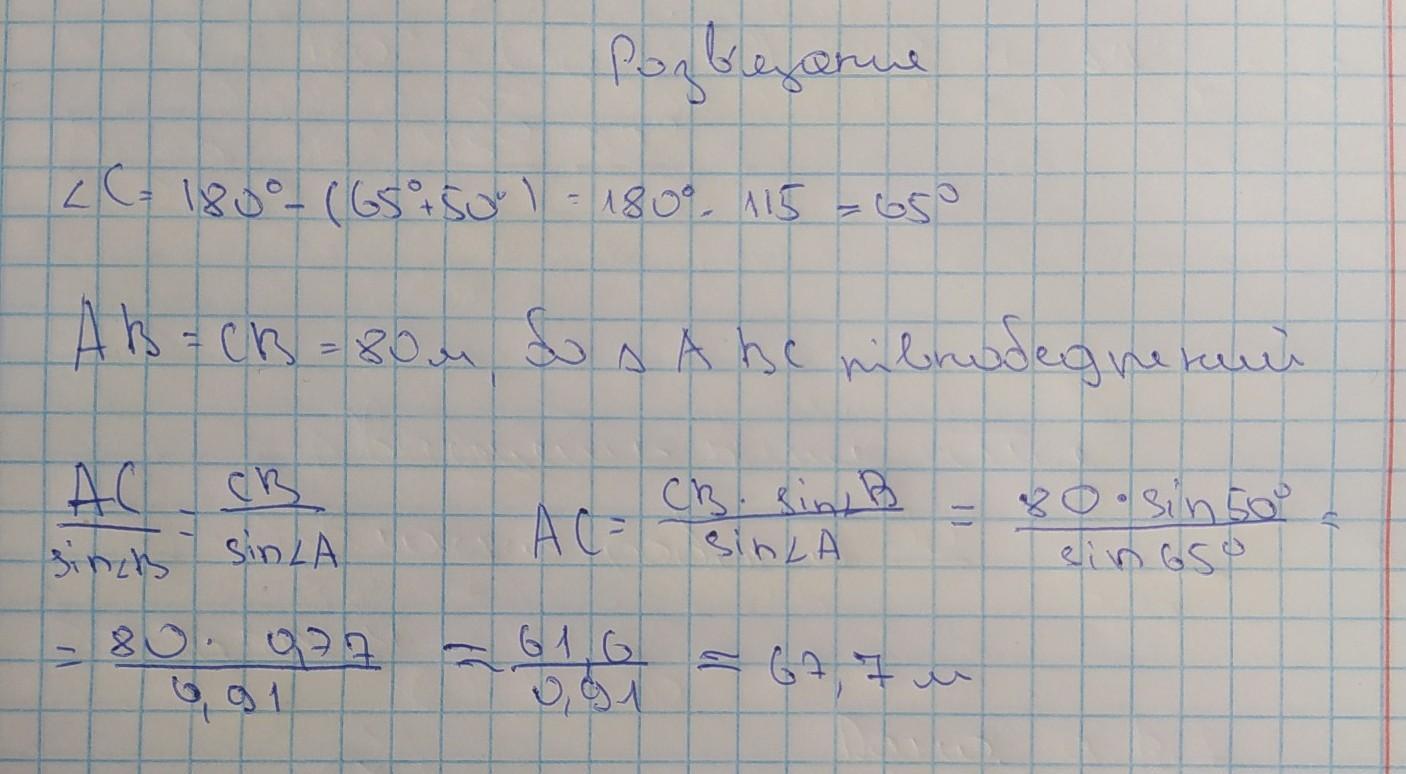 Розвʼязання
∠C = 180° - (65°+50°) = 180° - 115 = 65°
AB = CB = 80 м, бо △ ABC рівнобедрений
AC/sin∠B = CB/sin∠A AC = CB · sin∠B/sin∠A = 80 · sin50°/sin65° =
= 80 · 0,77/0,91 = 61,6/0,91 = 67,7 м